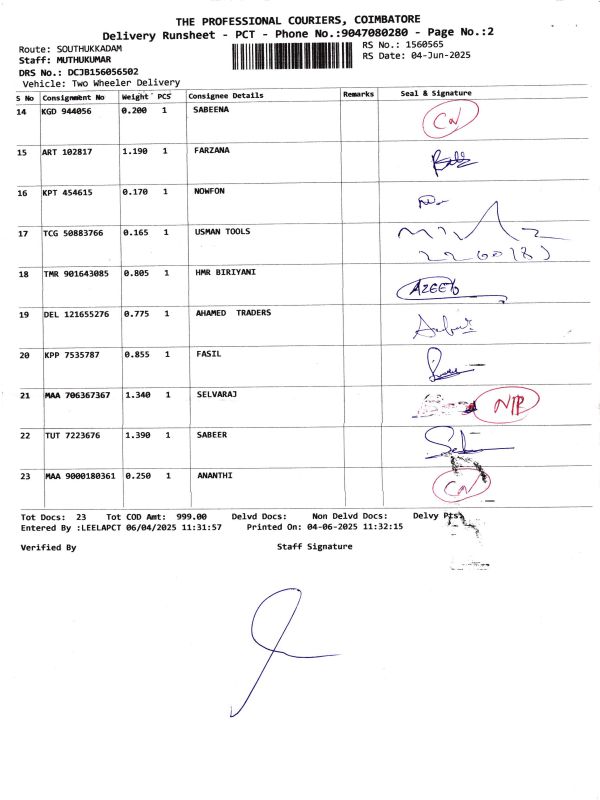 THE PROFESSIONAL COURIERS, COIMBATORE
Delivery Runsheet - PCT - Phone No.:9047080280 - Page No.:2
Route: SOUTHUKKADAM
RS No.: 1560565
Staff: MUTHUKUMAR
RS Date: 04-Jun-2025
DRS No.: DCJB156056502
Vehicle: Two Wheeler Delivery
S No Consignment No Weight PCS Consignee Details Remarks Seal & Signature
14 KGD 944056 0.200 1 SABEENA
15 ART 102817 1.190 1 FARZANA
16 KPT 454615 0.170 1 NOWFON
17 TCG 50883766 0.165 1 USMAN TOOLS
18 TMR 901643085 0.805 1 HMR BIRIYANI AZEEb
19 DEL 121655276 0.775 1 AHAMED TRADERS
20 KPP 7535787 0.855 1 FASIL
21 MAA 706367367 1.340 1 SELVARAJ
22 TUT 7223676 1.390 1 SABEER
23 MAA 9000180361 0.250 1 ANANTHI
Tot Docs: 23 Tot COD Amt: 999.00 Delvd Docs: Non Delvd Docs: Delvy Pts:
Entered By :LEELAPCT 06/04/2025 11:31:57 Printed On: 04-06-2025 11:32:15
Verified By Staff Signature